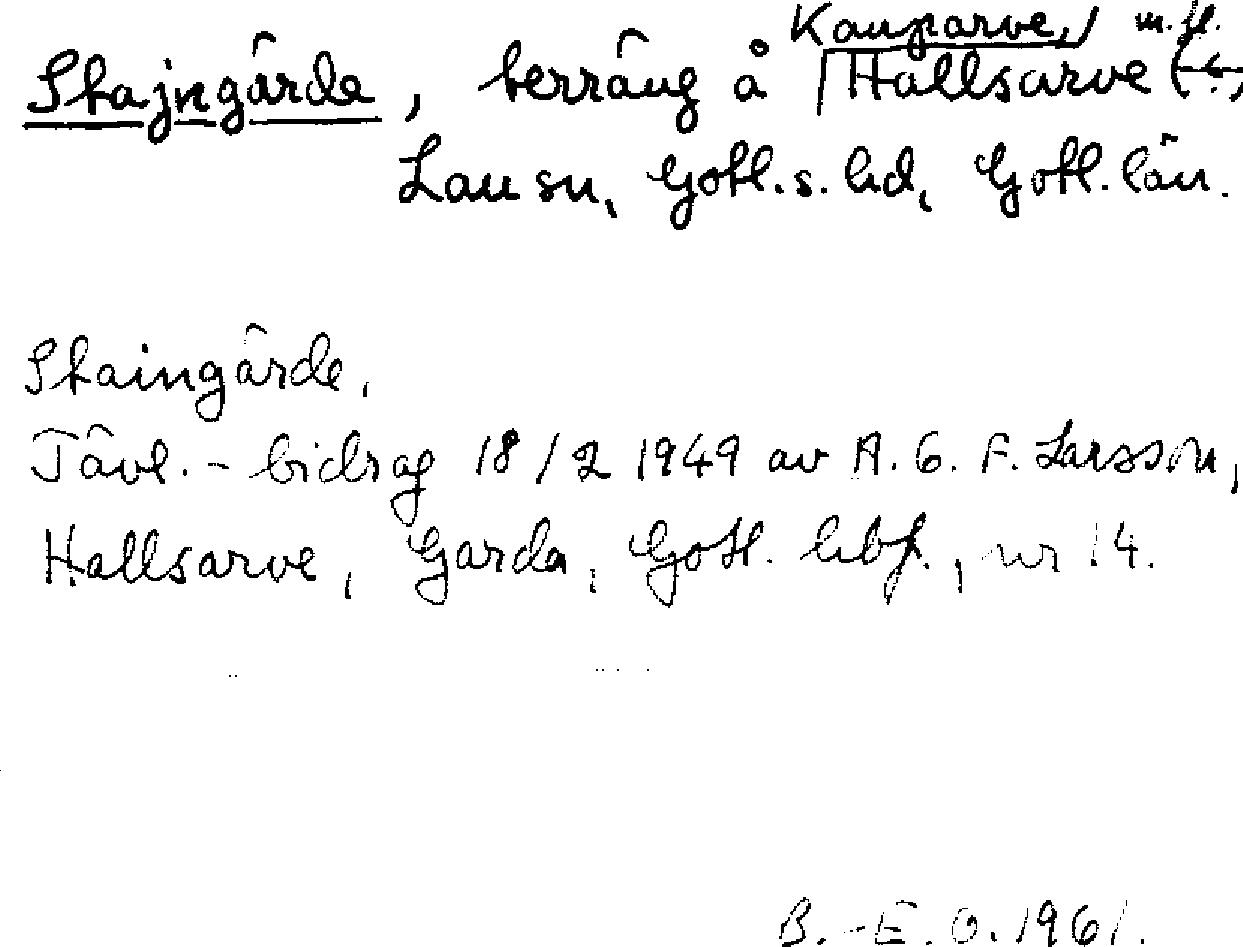 Kauparve, m.fl.
Stajngärde, terräng å Hallsarve
Lau sn, Gotl.s.hd, Gotl.län.
Staingärde,
Tävl.-bidrag 18/2 1949 av A.G.F. Larsson,
Hallsarve, Garda, Gotl. hbf., nr 14.
B.-E.O.1961.